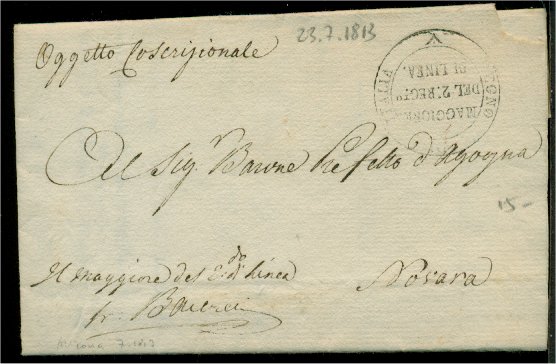 23.7.1813
Oggetto Coscrizionale
REGNO D'ITALIA
MAGGIORE
DEL 2.º REG.to
DI LINEA.
Al Sig.r Barone Prefetto d'Agogna
15-
Il Maggiore del 2.do di Linea
Novara
7.1813